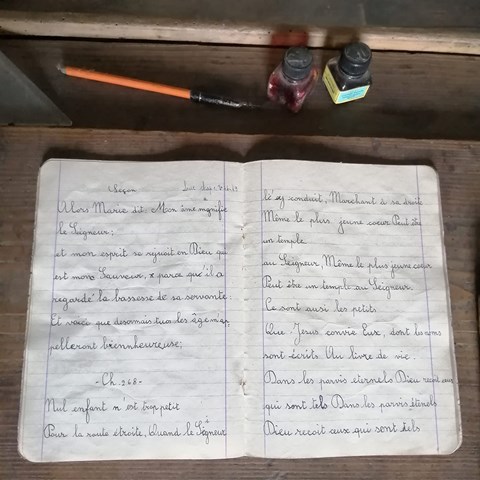 Leçon Luc
Alors Marie dit Mon âme magnifie
le Seigneur;
et mon esprit se rejouit en Dieu qui
est mon Sauveur, parce qu'il a
regardé la bassesse de sa servante:
Et voici que desormais tous les âges m'ap,
pelleront bienheureuse,
- Ch. 268 -
Nul enfant n'est trop petit
Pour la route étroite, Quand le Seigneur
le sy conduit, Marchant à sa droite
Même le plus jeune coeur Peut être
un temple
au Seigneur, Même le plus jeune coeur
Peut être un temple au Seigneur.
Ce sont aussi les petits
Que Jesus convie Eux, dont les noms
sont écrits. Au livre de vie.
Dans les parvis eternels Dieu recoit ceux
qui sont tels Dans les parvis éternels
Dieu recoit ceux qui sont tels